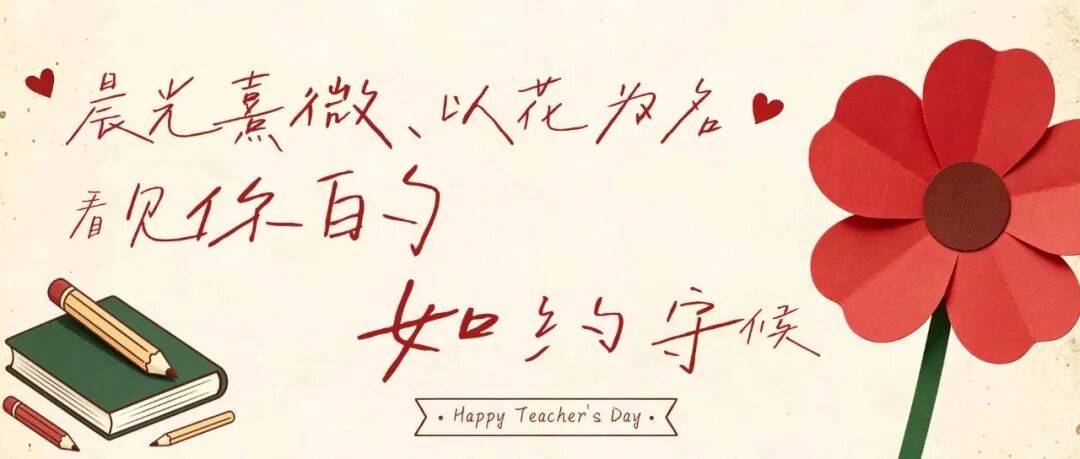 晨光熹微、以花为名
看见你的
如约守候
· Happy Teacher's Day ·